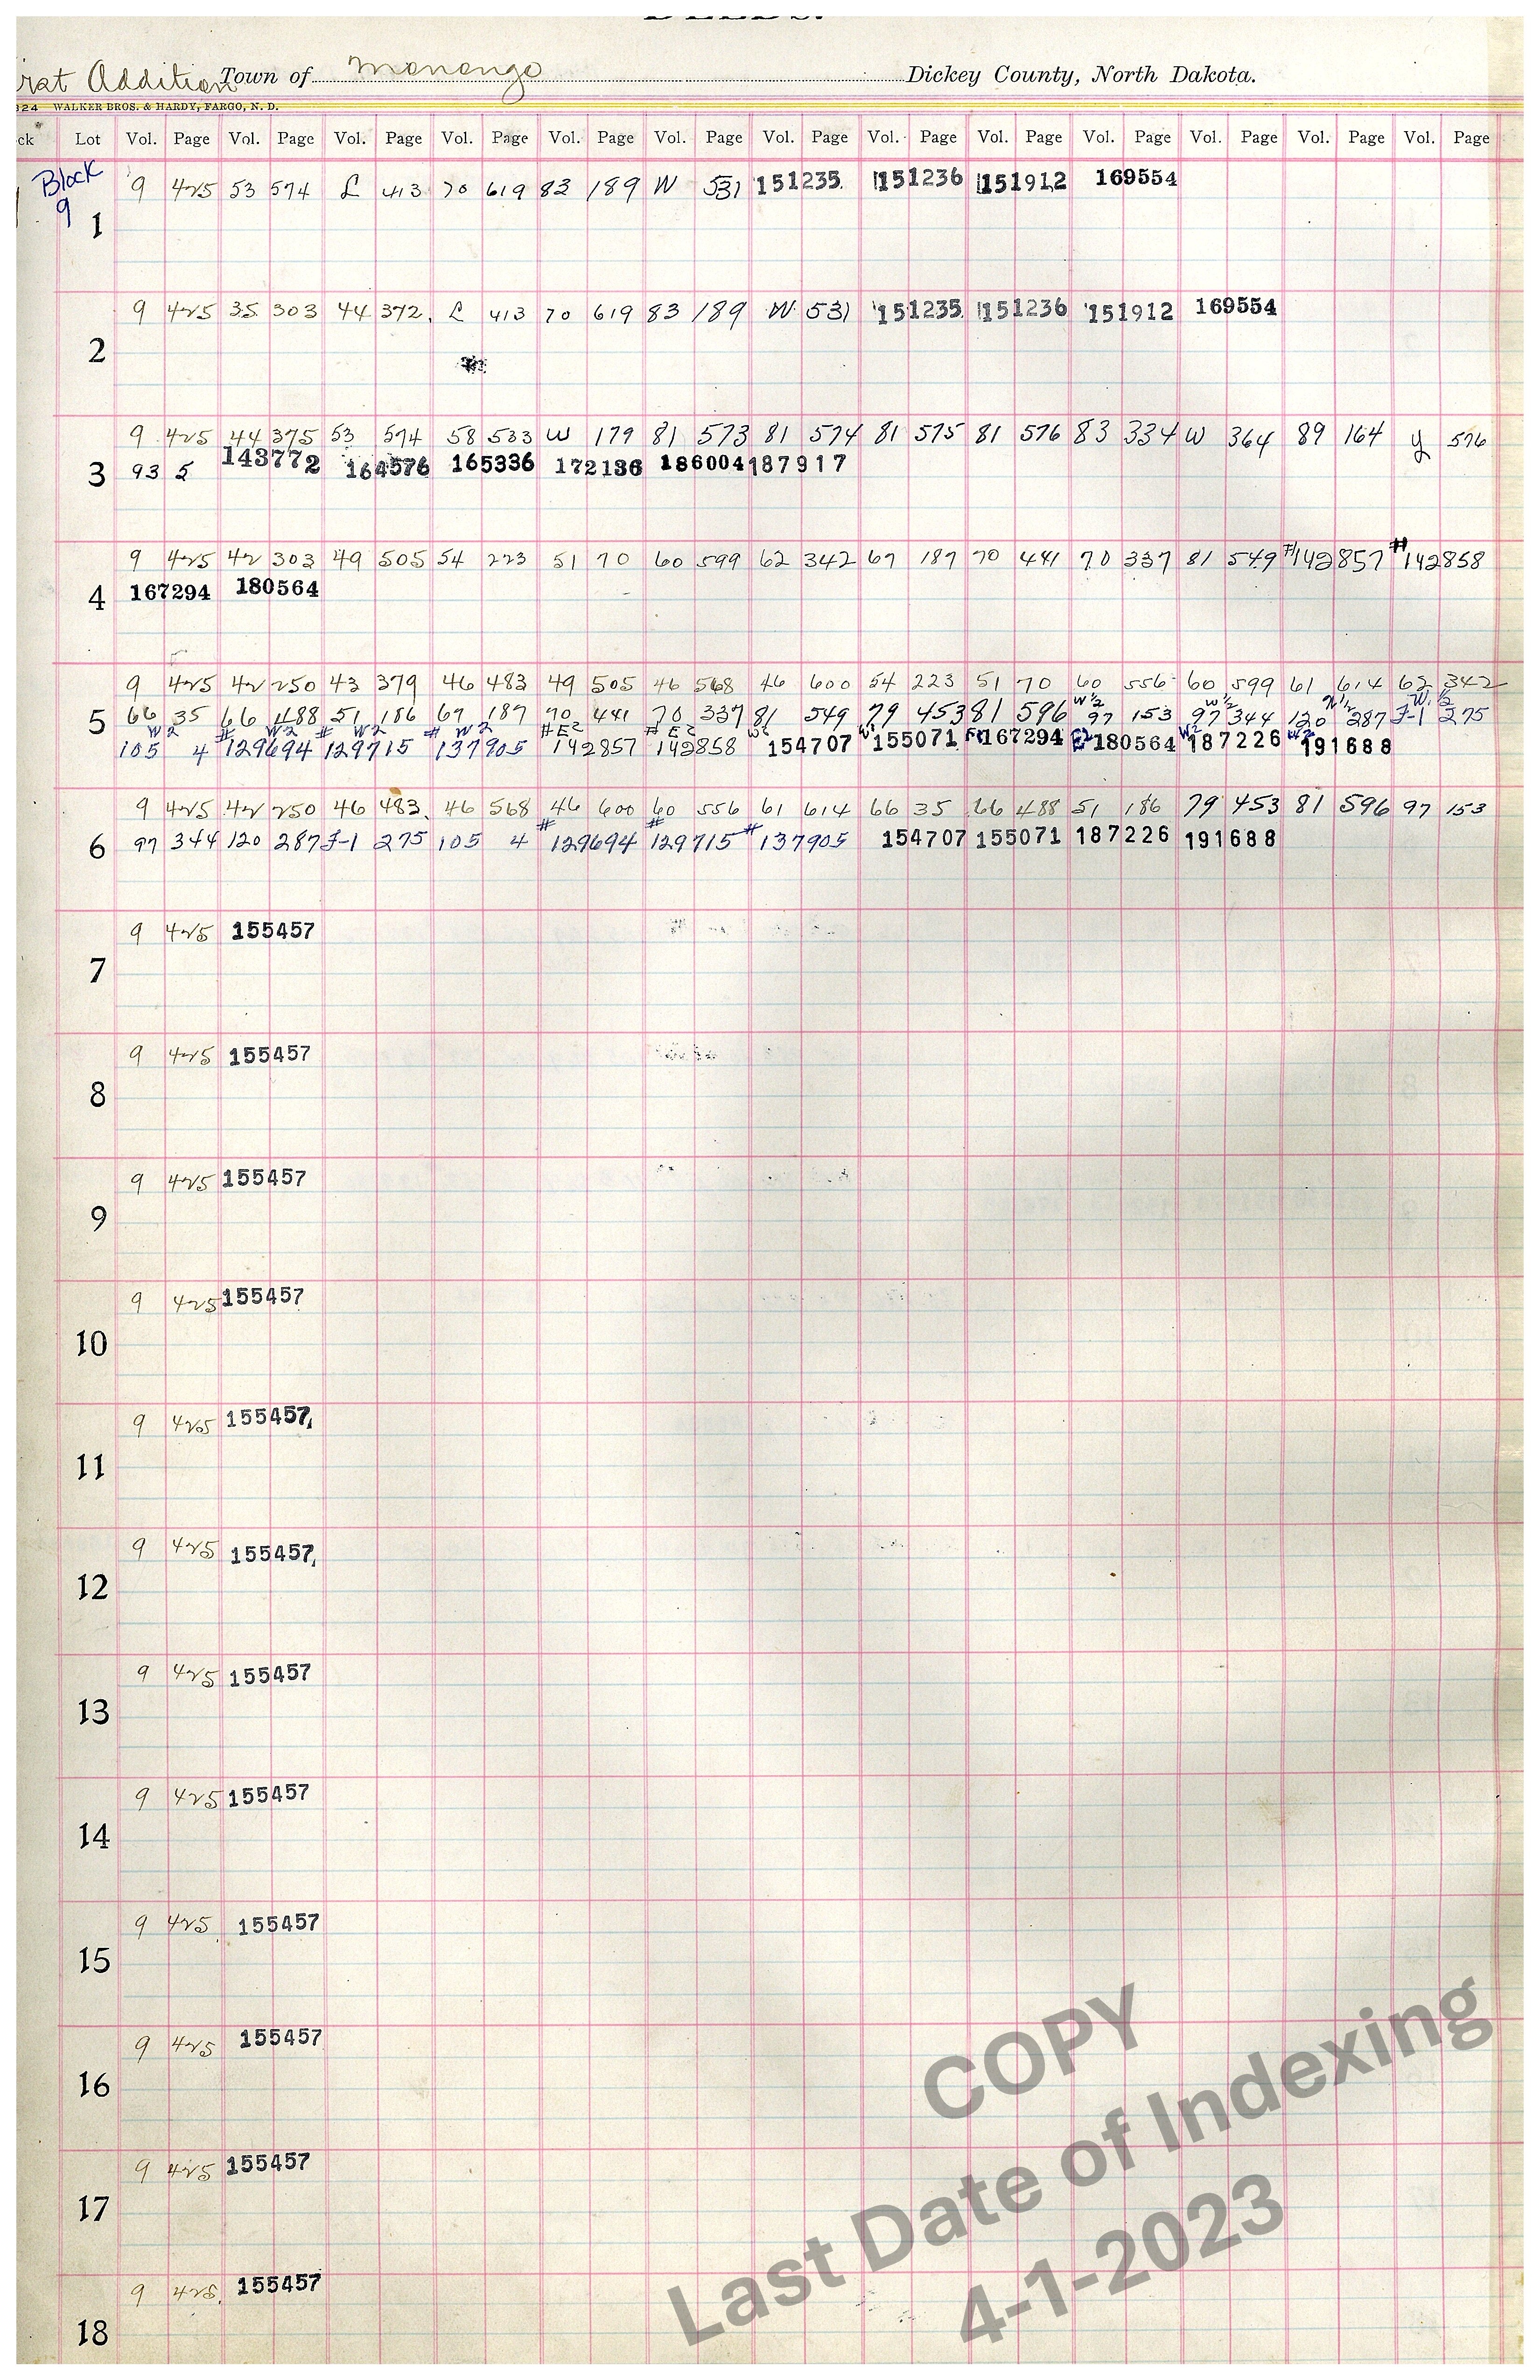 Addition Town of Monango Dickey County, North Dakota.
324 WALKER BROS. & HARDY, FARGO, N. D.
ck Lot Vol. Page Vol. Page Vol. Page Vol. Page Vol. Page Vol. Page Vol. Page Vol. Page Vol. Page Vol. Page Vol. Page Vol. Page Vol. Page
Block 9
1 9 425 53 574 L 413 70 619 83 189 W 531 151235 151236 151912 169554
2 9 425 35 303 44 372 L 413 70 619 83 189 W 531 151235 151236 151912 169554
3 9 425 44 375 53 574 58 533 W 179 81 573 81 574 81 575 81 576 83 334 W 364 89 164 Y 576
93 5 143772 164576 165336 172136 186004 187917
4 9 425 42 303 49 505 54 223 51 70 60 599 62 342 67 187 70 441 70 337 81 549 #142857 #142858
167294 180564
5 9 425 42 250 43 379 46 483 49 505 46 568 46 600 54 223 51 70 60 556 60 599 61 614 62 342
W 1/2 W 1/2 W 1/2 W 1/2
66 35 66 488 51 186 67 187 70 441 70 337 81 549 79 453 81 596 97 153 97 344 120 287 J-1 275
W2 # W2 # W2 # W2 # E2 # E2 W2 W2 E2 W2 W2
105 4 129694 129715 137905 142857 142858 154707 155071 167294 180564 187226 191688
6 9 425 42 250 46 483 46 568 46 600 60 556 61 614 66 35 66 488 51 186 79 453 81 596 97 153
97 344 120 287 J-1 275 105 4 #129694 #129715 #137905 154707 155071 187226 191688
7 9 425 155457
8 9 425 155457
9 9 425 155457
10 9 425 155457
11 9 425 155457
12 9 425 155457
13 9 425 155457
14 9 425 155457
15 9 425 155457
16 9 425 155457
17 9 425 155457
18 9 425 155457
COPY
Last Date of Indexing
4-1-2023